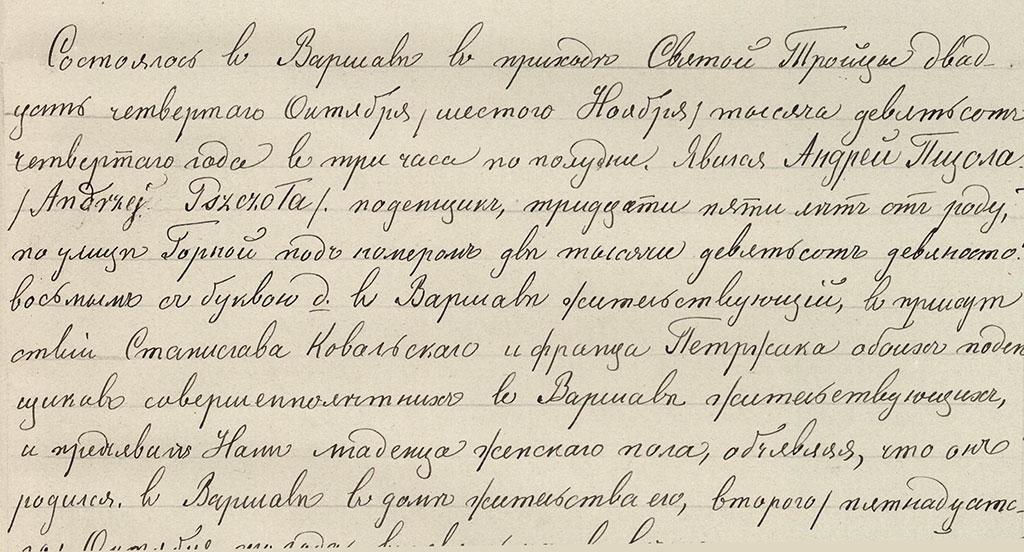 Состоялось въ Варшавѣ въ приходѣ Святой Тройцы двад-
цать четвертаго Октября /шестого Ноября/ тысяча девятьсотъ
четвертаго года въ три часа по полудни. Явился Андрей Пщола
/Andrzej Pszczoła/. поденщикъ, тридцати пяти лѣтъ отъ роду,
по улицѣ Горной подъ номеромъ двѣ тысячи девятьсотъ девяносто
восьмымъ съ буквою д. въ Варшавѣ жительствующій, въ присут
ствіи Станислава Ковальскаго и Франца Петржака обоихъ поден
щиковъ совершеннолѣтнихъ въ Варшавѣ жительствующихъ,
и предъявилъ Намъ младенца женскаго пола, объявляя, что онъ
родился въ Варшавѣ въ домѣ жительства его, второго /пятнадцат-
го/ Октября